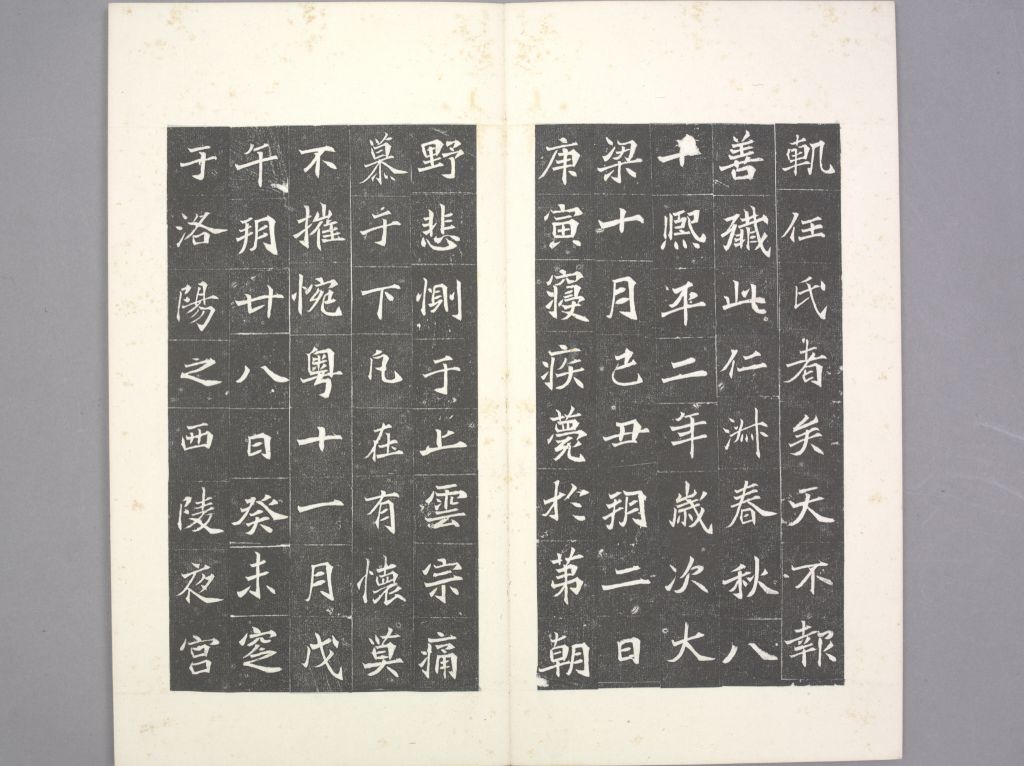 軌任氏者矣天不報
善殲此仁淋春秋八
十熈平二年歳次大
梁十月己丑玥二日
庚寅寑疾薨於苐朝
野悲惻于上雲宗痛
慕于下凡在有懷莫
不摧惋粤十一月戊
午玥廿八日癸未窆
于洛陽之西陵夜宫